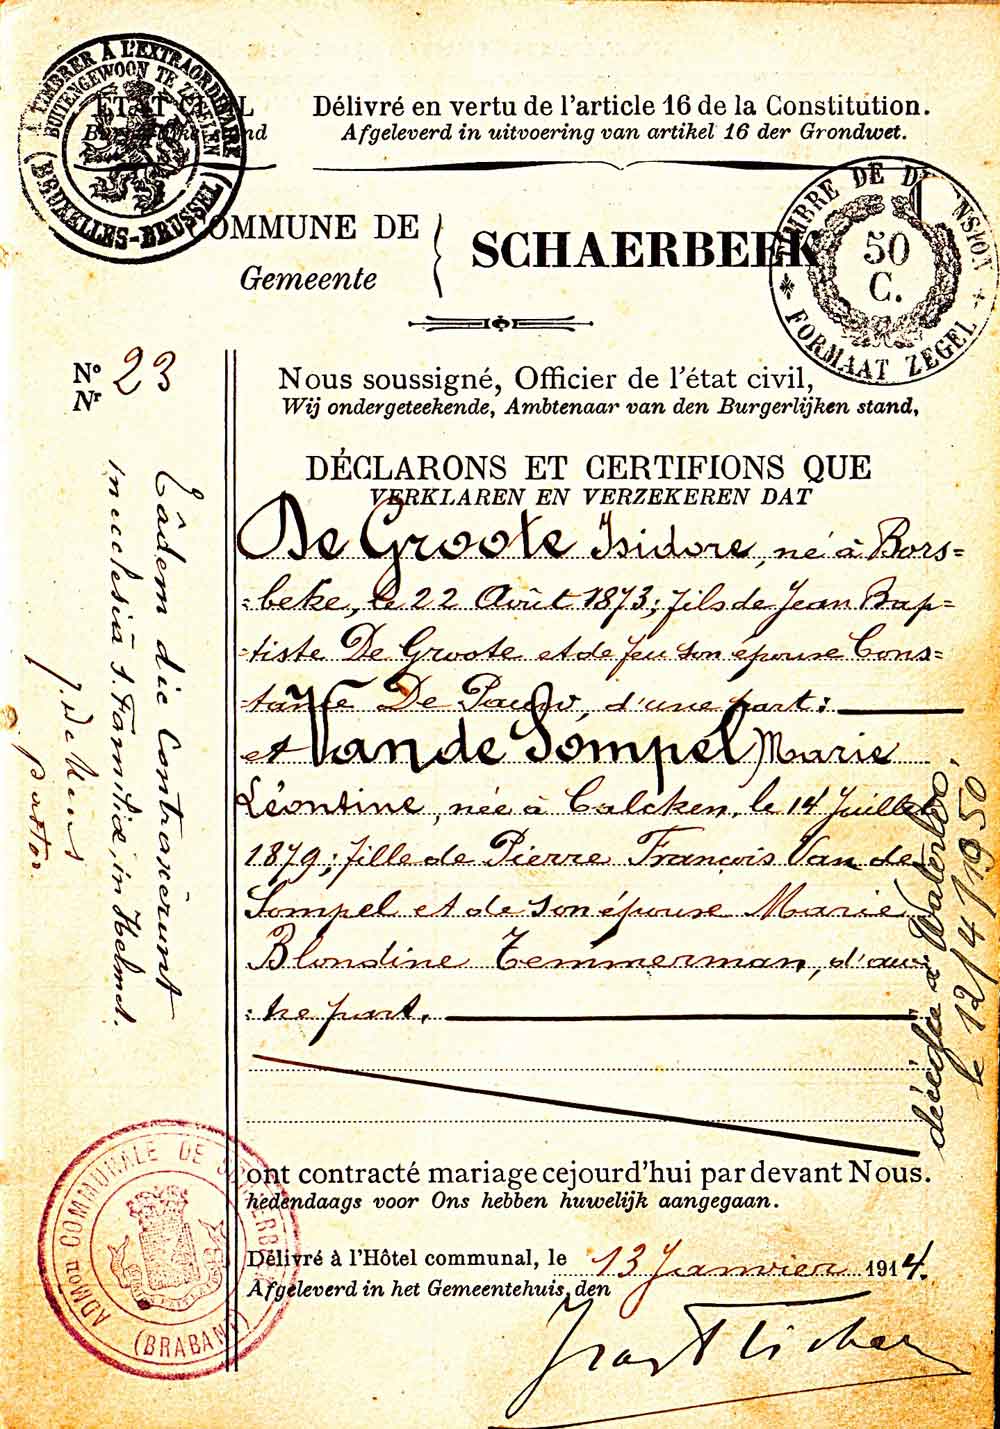 TIMBRER À L'EXTRAORDINAIRE
BUITENGEWOON TE ZEGELEN
(BRUXELLES-BRUSSEL)
ETAT CIVIL
Burgerlijke stand
Délivré en vertu de l'article 16 de la Constitution.
Afgeleverd in uitvoering van artikel 16 der Grondwet.
COMMUNE DE
Gemeente
SCHAERBEEK
TIMBRE DE DIMENSION
50
C.
FORMAAT ZEGEL
N° 23
Nr
Nous soussigné, Officier de l'état civil,
Wij ondergeteekende, Ambtenaar van den Burgerlijken stand,
DÉCLARONS ET CERTIFIONS QUE
VERKLAREN EN VERZEKEREN DAT
De Groote Isidore, né à Bors=
=beke, le 22 Août 1873; fils de Jean Bap=
=tiste De Groote et de feu son épouse Cons=
=tance De Pauw, d'une part:
et Van de Sompel Marie
Léontine, née à Calcken, le 14 Juillet
1879; fille de Pierre François Van de
Sompel et de son épouse Marie
Blondine Temmerman, d'au=
=tre part.
ont contracté mariage cejourd'hui par devant Nous.
hedendaags voor Ons hebben huwelijk aangegaan.
Délivré à l'Hôtel communal, le 13 Janvier 1914.
Afgeleverd in het Gemeentehuis, den
Eâdem die contraxerunt
in ecclesiâ S. Familiæ, in Helmet.
pastor
décédée à Waterloo,
le 12/4/1950
ADMON COMMUNALE DE SCHAERBEEK
(BRABANT)